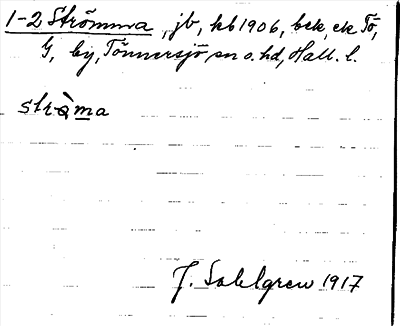 1-2 Strömma, jb, kb 1906, bck, ek Tö,
G, by, Tönnersjö sn o. hd, Hall. l.
stròma
J. Sahlgren 1917